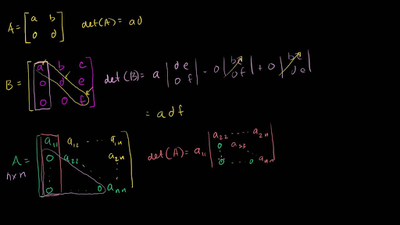 A = [a b 0 d] det(A) = ad
B = [a b c 0 d e 0 0 f] det(B) = a |d e 0 f| - 0 |b c 0 f| + 0 |b c d e|
= adf
A = [a₁₁ a₁₂ ... a₁ₙ 0 a₂₂ ... a₂ₙ ⋮ 0 ... 0 aₙₙ] det(A) = a₁₁ |a₂₂ ... a₂ₙ 0 a₃₃ ... ⋮ 0 ... 0 aₙₙ|
n×n